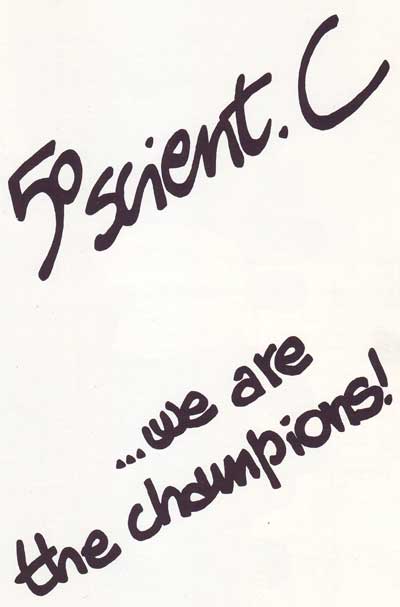 5º scient. C
...we are
the champions!